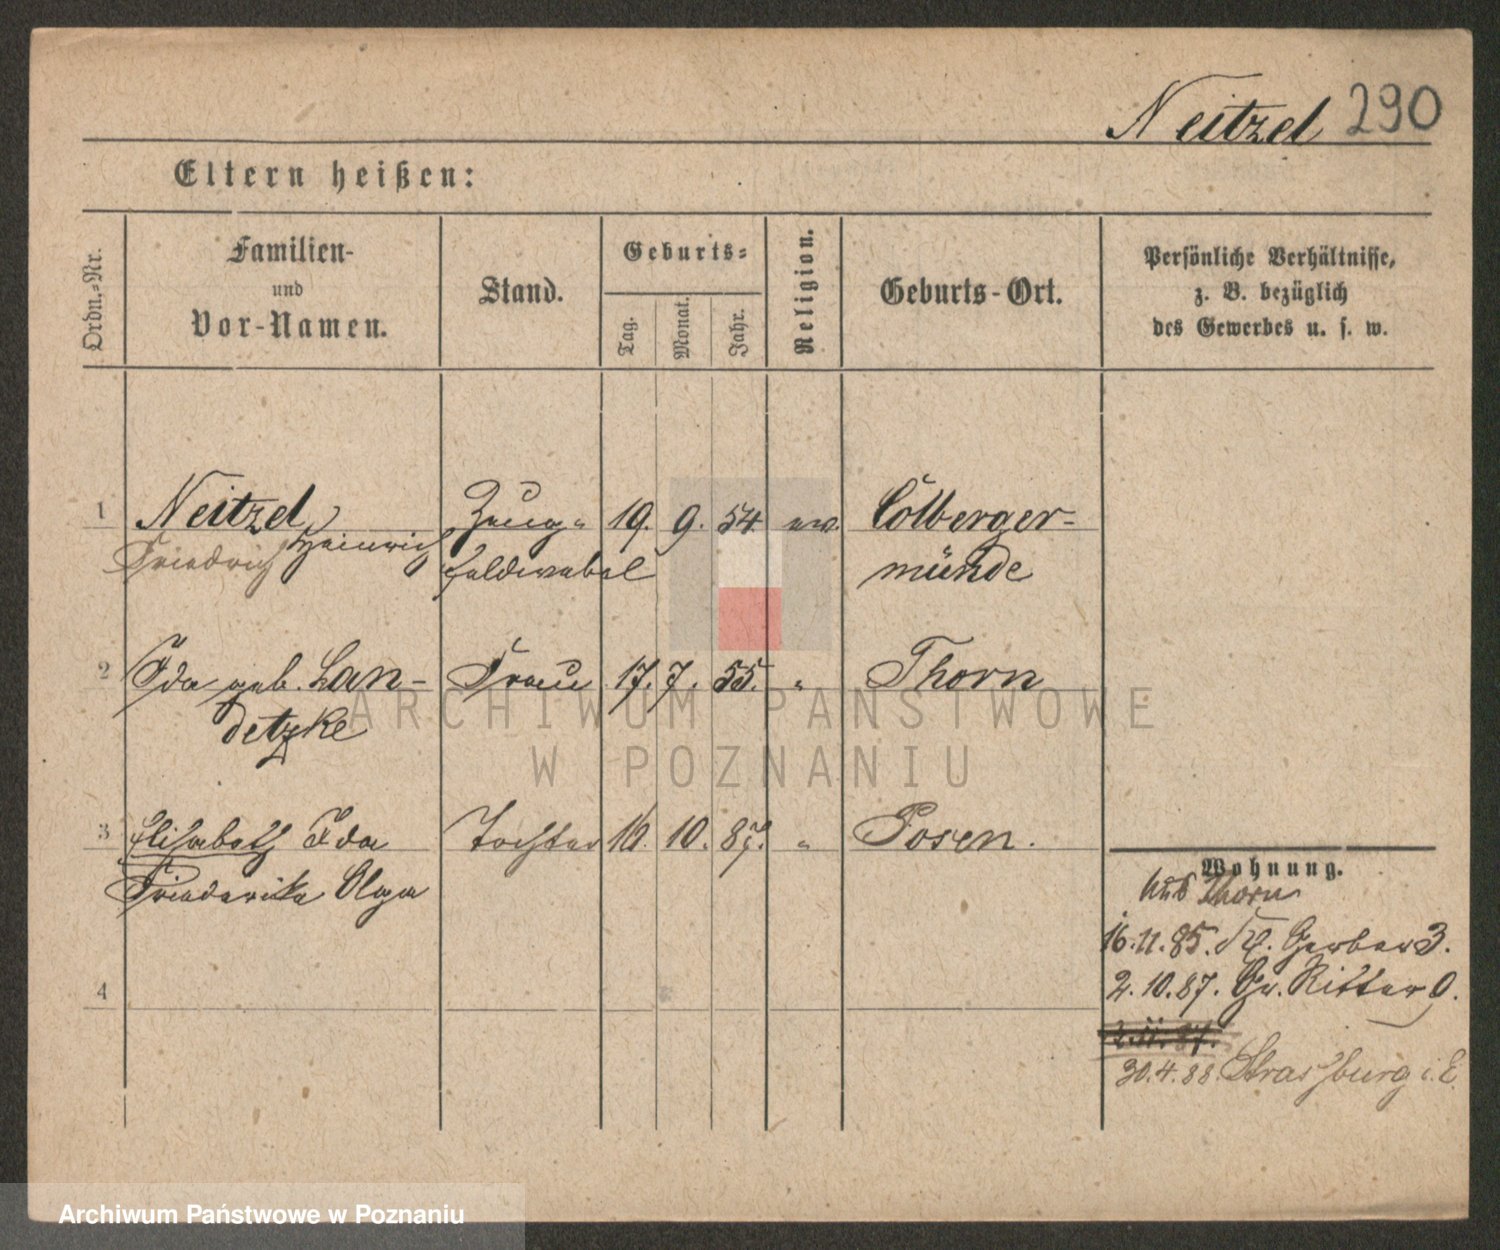 Neitzel 290
Eltern heißen:
Ordn.-Nr.
Familien-
und
Vor-Namen.
Stand.
Geburts-
Tag.
Monat.
Jahr.
Religion.
Geburts-Ort.
Persönliche Verhältnisse,
z. B. bezüglich
des Gewerbes u. s. w.
1 Neitzel, Zeug- 19. 9. 54. ev. Colberger-
Friedrich Heinrich feldwebel münde
2 Ida geb. Lan- Frau 17. 7. 55. " Thorn
detzke
3 Elisabeth Ida Tochter 10. 87. " Posen.
Friederike Olga
4
Wohnung.
aus Thorn
16.11.85. Gerber 3.
2.10.87. Gr. Ritter
30.4.88. Strassburg i. E.
ARCHIWUM PAŃSTWOWE
W POZNANIU
Archiwum Państwowe w Poznaniu